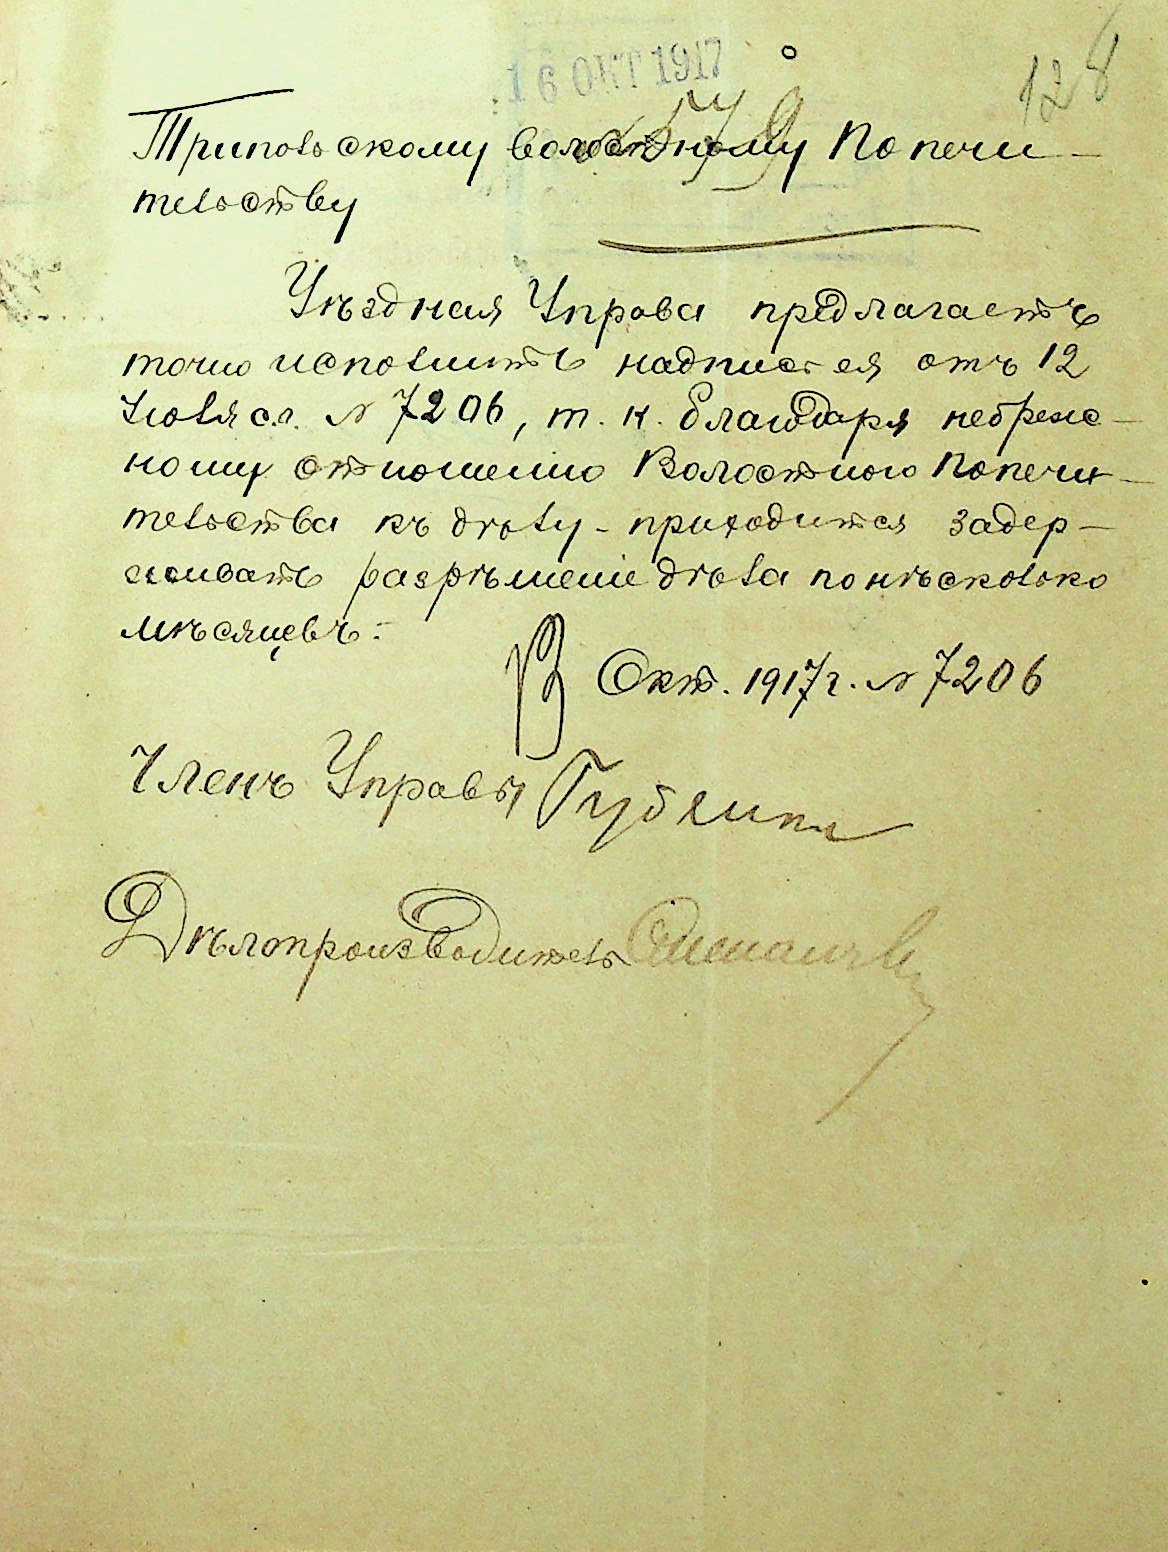 16 ОКТ 1917
128
579
Трипольскому волостному Попечи-
тельству
Уѣздная Управа предлагаетъ
точно исполнить надпись ея отъ 12
Іюля с.г. № 7206, т. к. благодаря небреж-
ному отношенію Волостного Попечи-
тельства къ дѣлу - приходится задер-
живать разрѣшеніе дѣла по нѣсколько
мѣсяцевъ.
13 Окт. 1917 г. № 7206
Членъ Управы
Дѣлопроизводитель